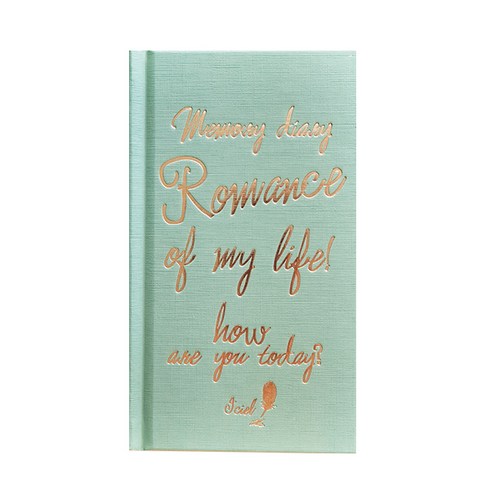 Memory diary
Romance
of my life!
how
are you today?
I'ciel